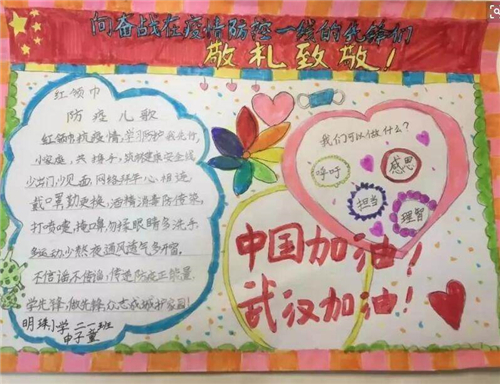 向奋战在疫情防控一线的先锋们
敬礼致敬！
红领巾
防疫儿歌
红领巾抗疫情，学习防护我先行，
小家庭，共携手，筑牢健康安全线
少出门，少见面，网络拜年心相连
戴口罩勤更换，酒精消毒防传染，
打喷嚏，掩口鼻勿揉眼睛多洗手，
多运动少熬夜通风透气多开窗，
不信谣不传谣，传递防疫正能量，
学先锋，做先锋，众志成城护家园！
明珠小学 二一班
申子童
我们可以做什么？
呼吁
感恩
担当
理智
中国加油！
武汉加油！